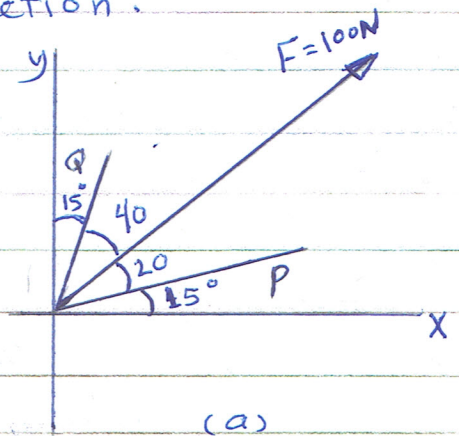 ection.
y
F=100N
Q
15°
40
20
P
15°
X
(a)